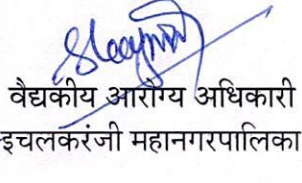 वैद्यकीय आरोग्य अधिकारी
इचलकरंजी महानगरपालिका